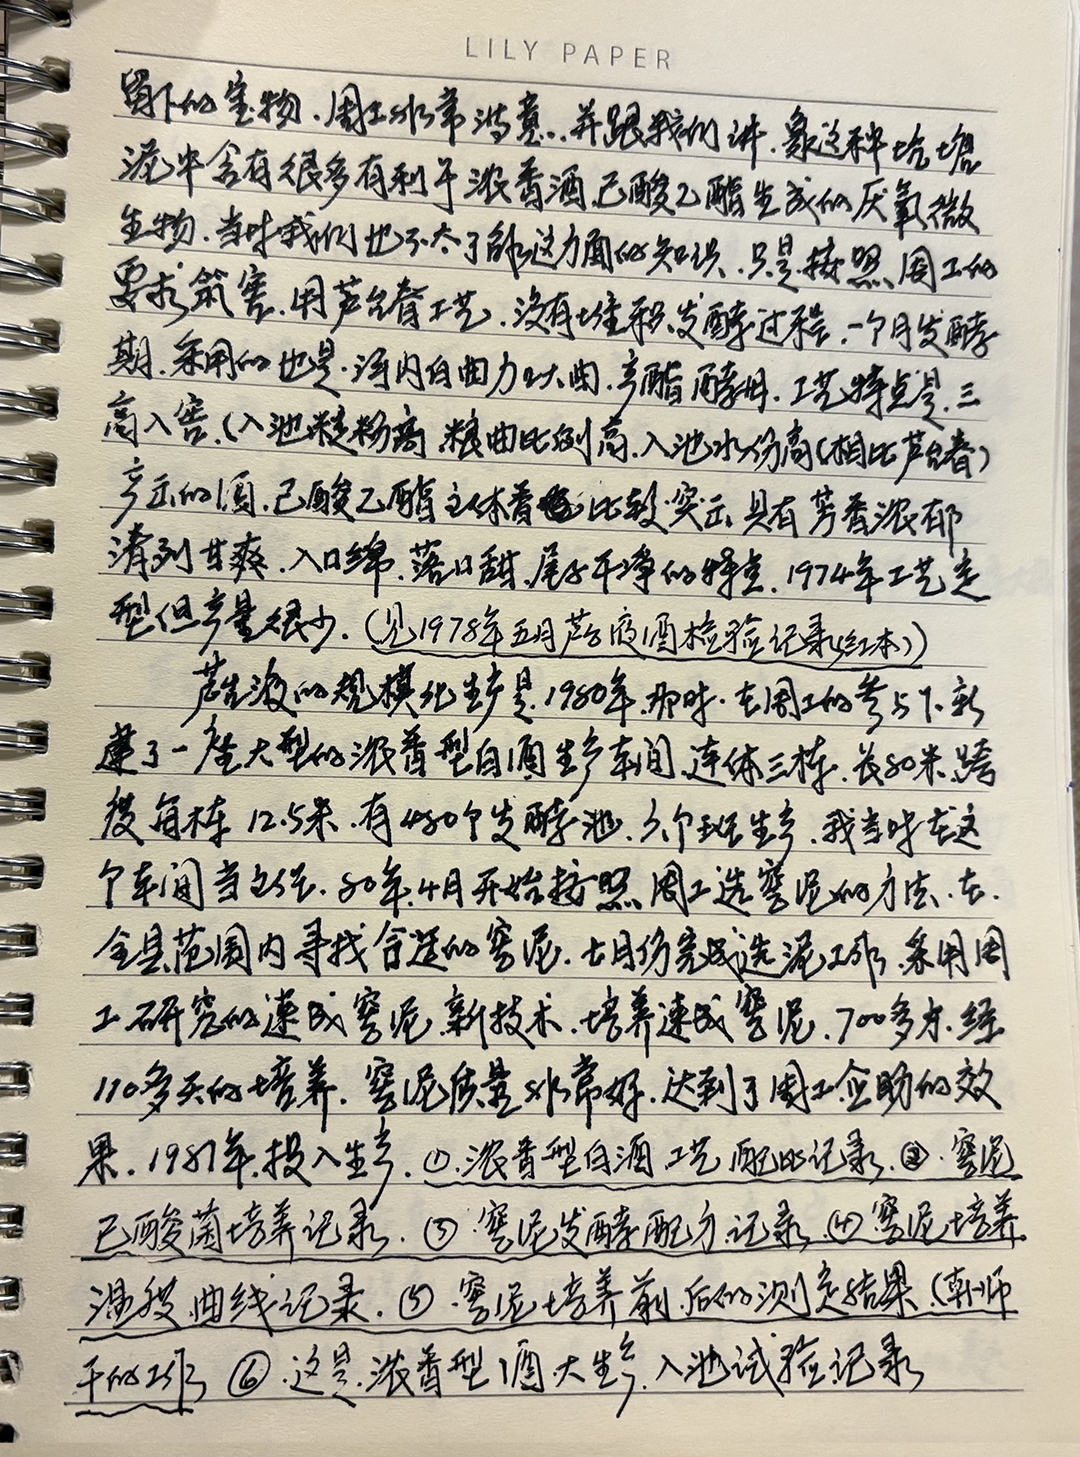 LILY PAPER
留下的宝物.周工非常满意..并跟我们讲.象这种坑塘
泥中含有很多有利于浓香酒.己酸乙酯生成的厌氧微
生物.当时我们也不太了解这方面的知识.只是按照周工的
要求筑窖.用芦台春工艺.没有堆积发酵过程.一个月发酵
期.采用的也是.河内白曲加大曲.产酯酵母.工艺特点是.三
高入窖.(入池淀粉高.粮曲比例高.入池水份高(相比芦台春)
产出的酒.己酸乙酯主体香比较突出.具有芳香浓郁
清冽甘爽.入口绵.落口甜.尾子干净的特点.1974年工艺定
型但产量很少.(见1978年五月芦台液酒检验记录(红本))
芦台液的规模化生产是1980年.那时.在周工的参与下.新
建了一座大型的浓香型白酒生产车间.连体三栋.长80米.跨
度每栋12.5米.有480个发酵池.六个班生产.我当时在这
个车间当主任.80年.4月开始按照.周工选窖泥的方法.在.
全县范围内寻找合适的窖泥.七月份完成选泥工作.采用周
工研究的速成窖泥.新技术.培养速成窖泥.700多方.经
110多天的培养.窖泥质量非常好.达到了周工企盼的效
果.1981年.投入生产.①.浓香型白酒.工艺配比记录.②.窖泥
己酸菌培养记录.③.窖泥发酵配方.记录.④窖泥培养
温度曲线记录.⑤.窖泥培养前.后的测定结果.(靳师
干的工作)⑥.这是.浓香型酒大生产.入池试验记录